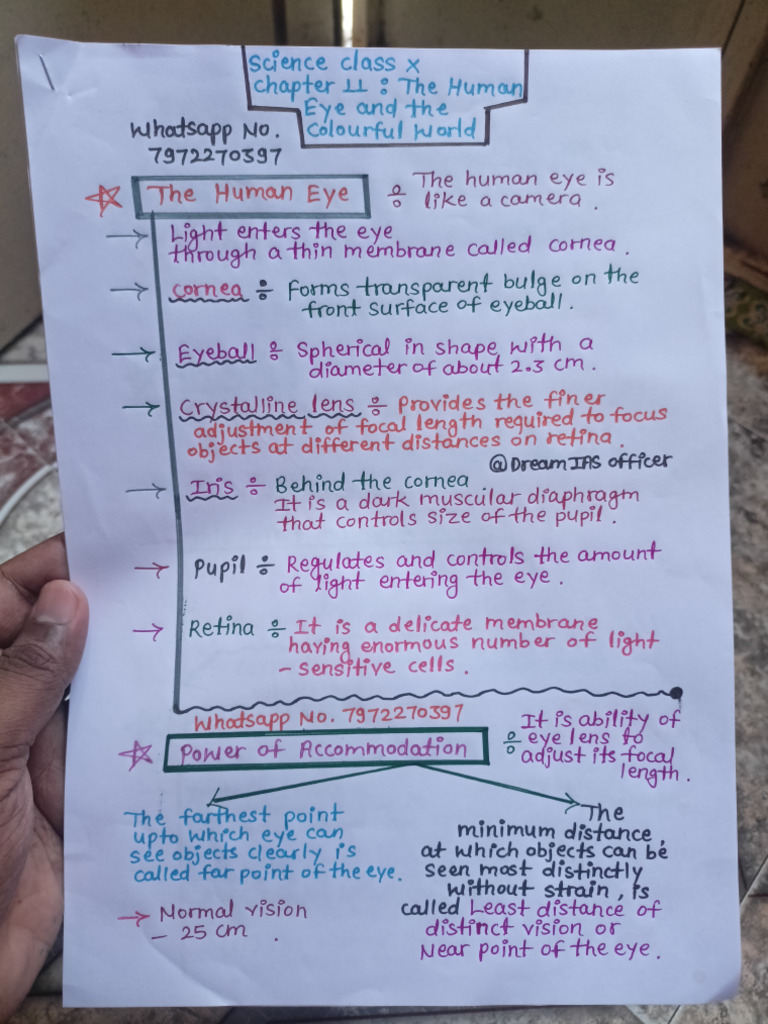 Science class X
Chapter 11 : The Human
Eye and the
Colourful World
Whatsapp No.
7972270397
The Human Eye ÷ The human eye is
like a camera .
→ Light enters the eye
through a thin membrane called cornea .
→ cornea ÷ Forms transparent bulge on the
front surface of eyeball .
→ Eyeball ÷ Spherical in shape with a
diameter of about 2.3 cm .
→ Crystalline lens ÷ Provides the finer
adjustment of focal length required to focus
objects at different distances on retina .
@DreamIAS officer
→ Iris ÷ Behind the cornea
It is a dark muscular diaphragm
that controls size of the pupil .
→ Pupil ÷ Regulates and controls the amount
of light entering the eye .
→ Retina ÷ It is a delicate membrane
having enormous number of light
- sensitive cells .
Whatsapp No. 7972270397
Power of Accommodation ÷ It is ability of
eye lens to
adjust its focal
length .
The farthest point
upto which eye can
see objects clearly is
called far point of the eye.
→ Normal vision
- 25 cm .
The
minimum distance,
at which objects can be
seen most distinctly
without strain, is
called Least distance of
distinct vision or
Near point of the eye .